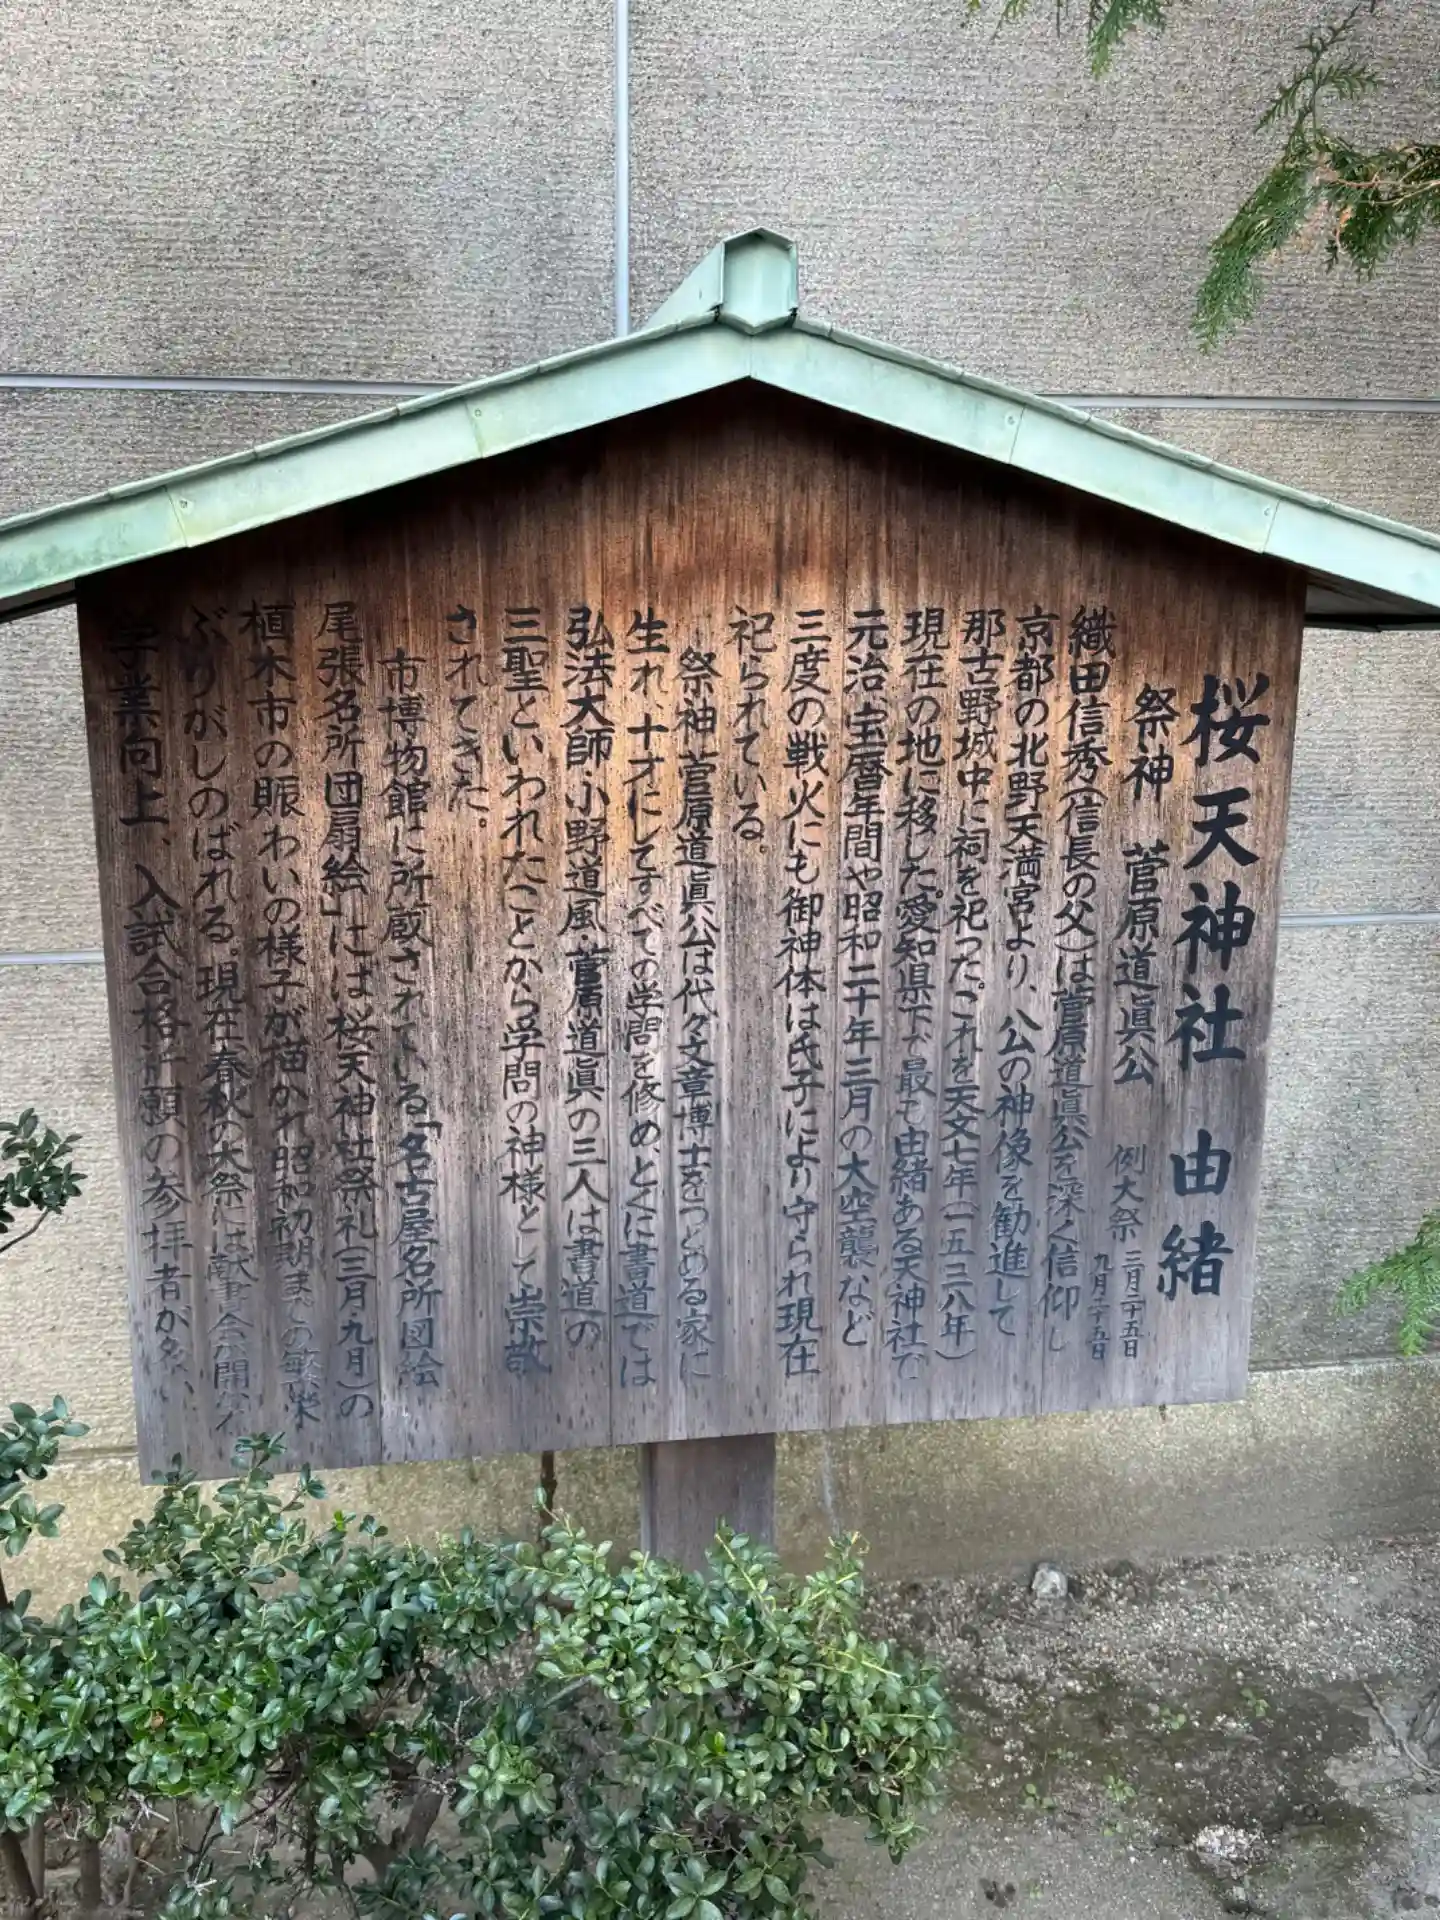 桜天神社 由緒
祭神 菅原道眞公 例大祭 三月二十五日
九月二十五日
織田信秀(信長の父)は菅原道眞公を深く信仰し
京都の北野天満宮より、公の神像を勧進して
那古野城中に祠を祀った。これを天文七年(一五三八年)
現在の地に移した。愛知県下で最も由緒ある天神社で
元治、宝暦年間や昭和二十年三月の大空襲など
三度の戦火にも御神体は氏子により守られ現在
祀られている。
祭神 菅原道眞公は代々文章博士をつとめる家に
生れ、十才にしてすべての学問を修め、とくに書道では
弘法大師・小野道風・菅原道眞の三人は書道の
三聖といわれたことから学問の神様として崇敬
されてきた。
市博物館に所蔵されている「名古屋名所団絵
尾張名所団扇絵」には桜天神社祭礼(三月九月)の
植木市の賑わいの様子が描かれ昭和初期までの繁栄
ぶりがしのばれる。現在春秋の大祭には献書会が開かれ
学業向上、入試合格祈願の参拝者が多い